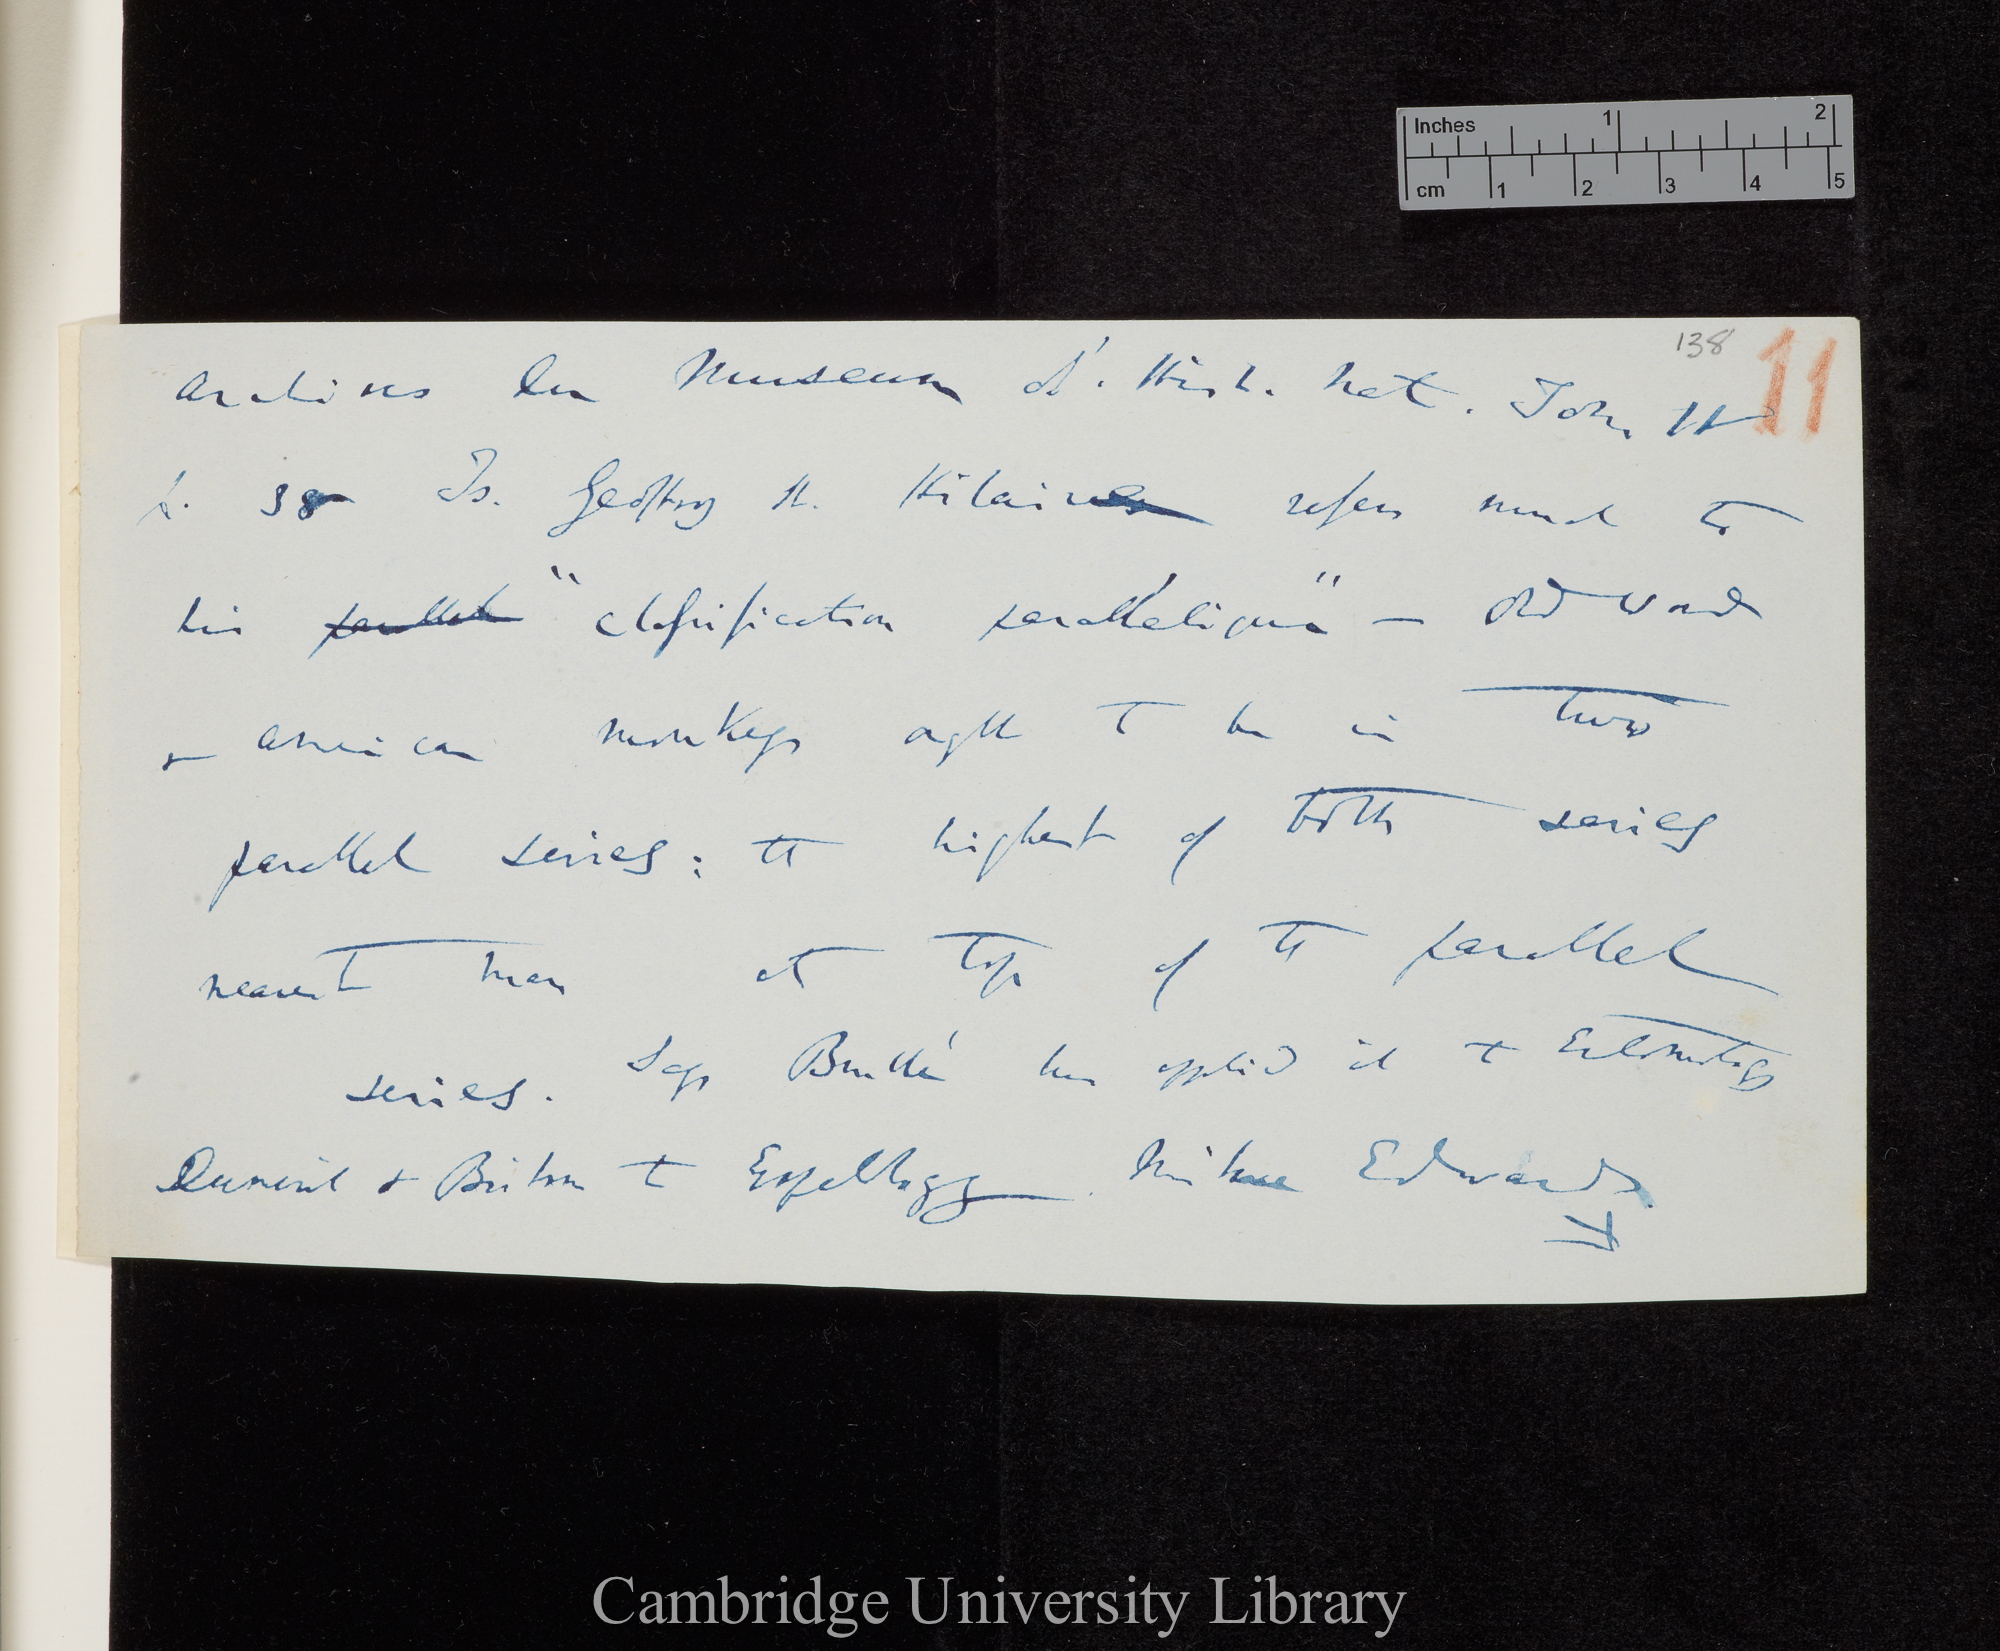 Inches 1 2
cm 1 2 3 4 5
138 11
Archives du Museum d'. Hist. Nat. Tom II
p. 38 Is. Geoffroy St. Hilaire refers much to
his parallel "classification paralléliques" — Old World
& American monkeys ought to be in two
parallel series: the highest of both series
nearest man at top of the parallel
series. Says Brullé has applied it to Entomology
Dumeril & Bibron to Erpetology Milne Edwards
Cambridge University Library